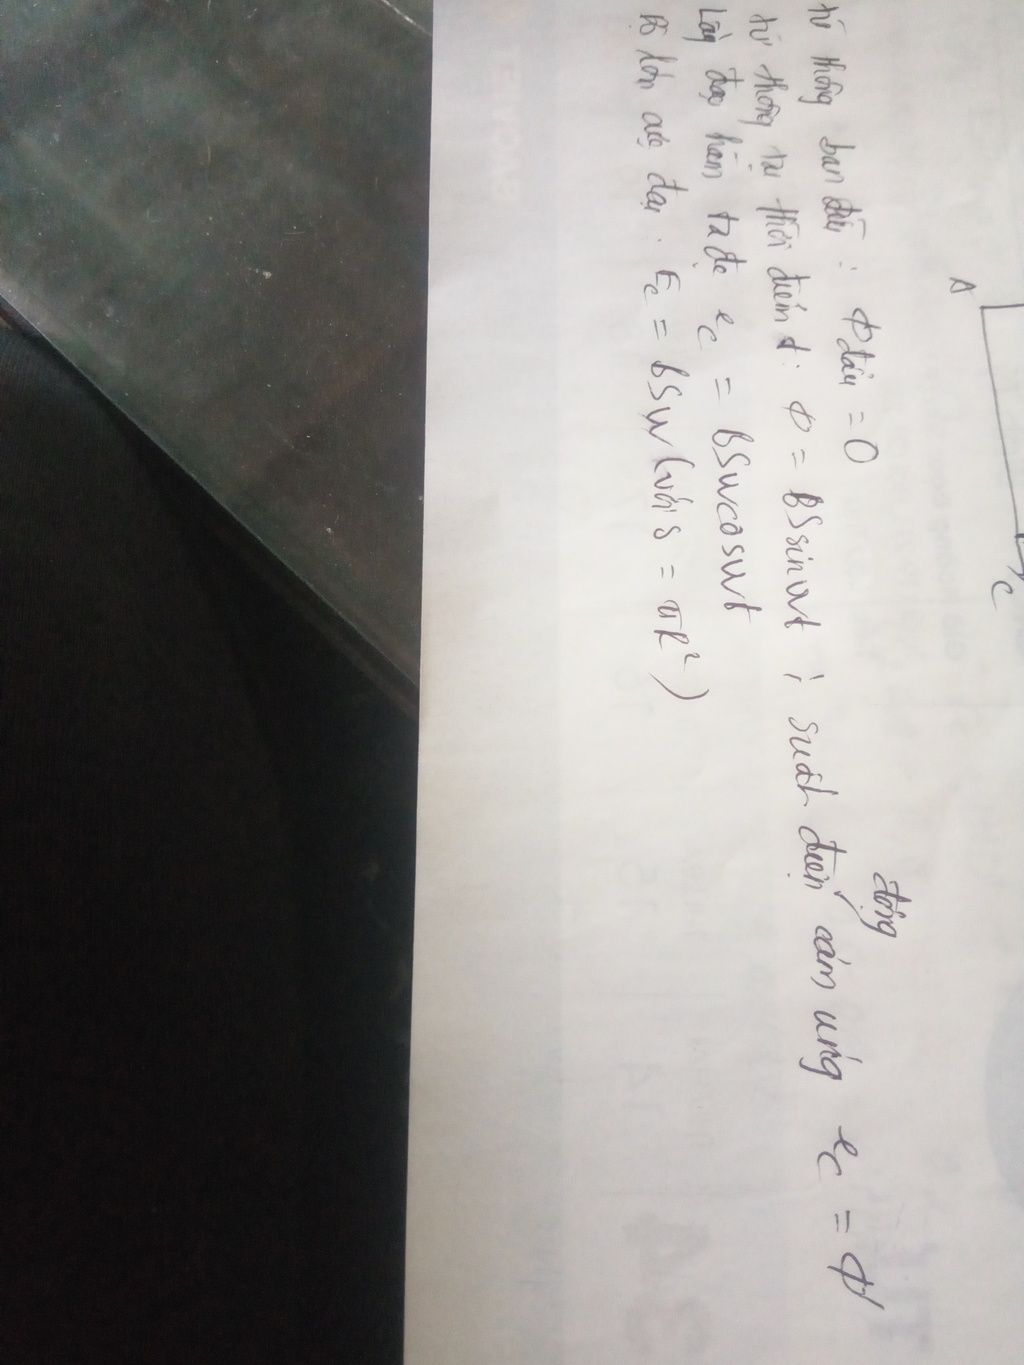 A
C
từ thông ban đầu : Φ đầu = 0
động
từ thông tại thời điểm t : Φ = BSsinωt ; suất điện cảm ứng e_c = Φ'
Lấy đạo hàm ta đc e_c = BSωcosωt
Độ lớn cực đại : E_c = BSω (với S = πR²)